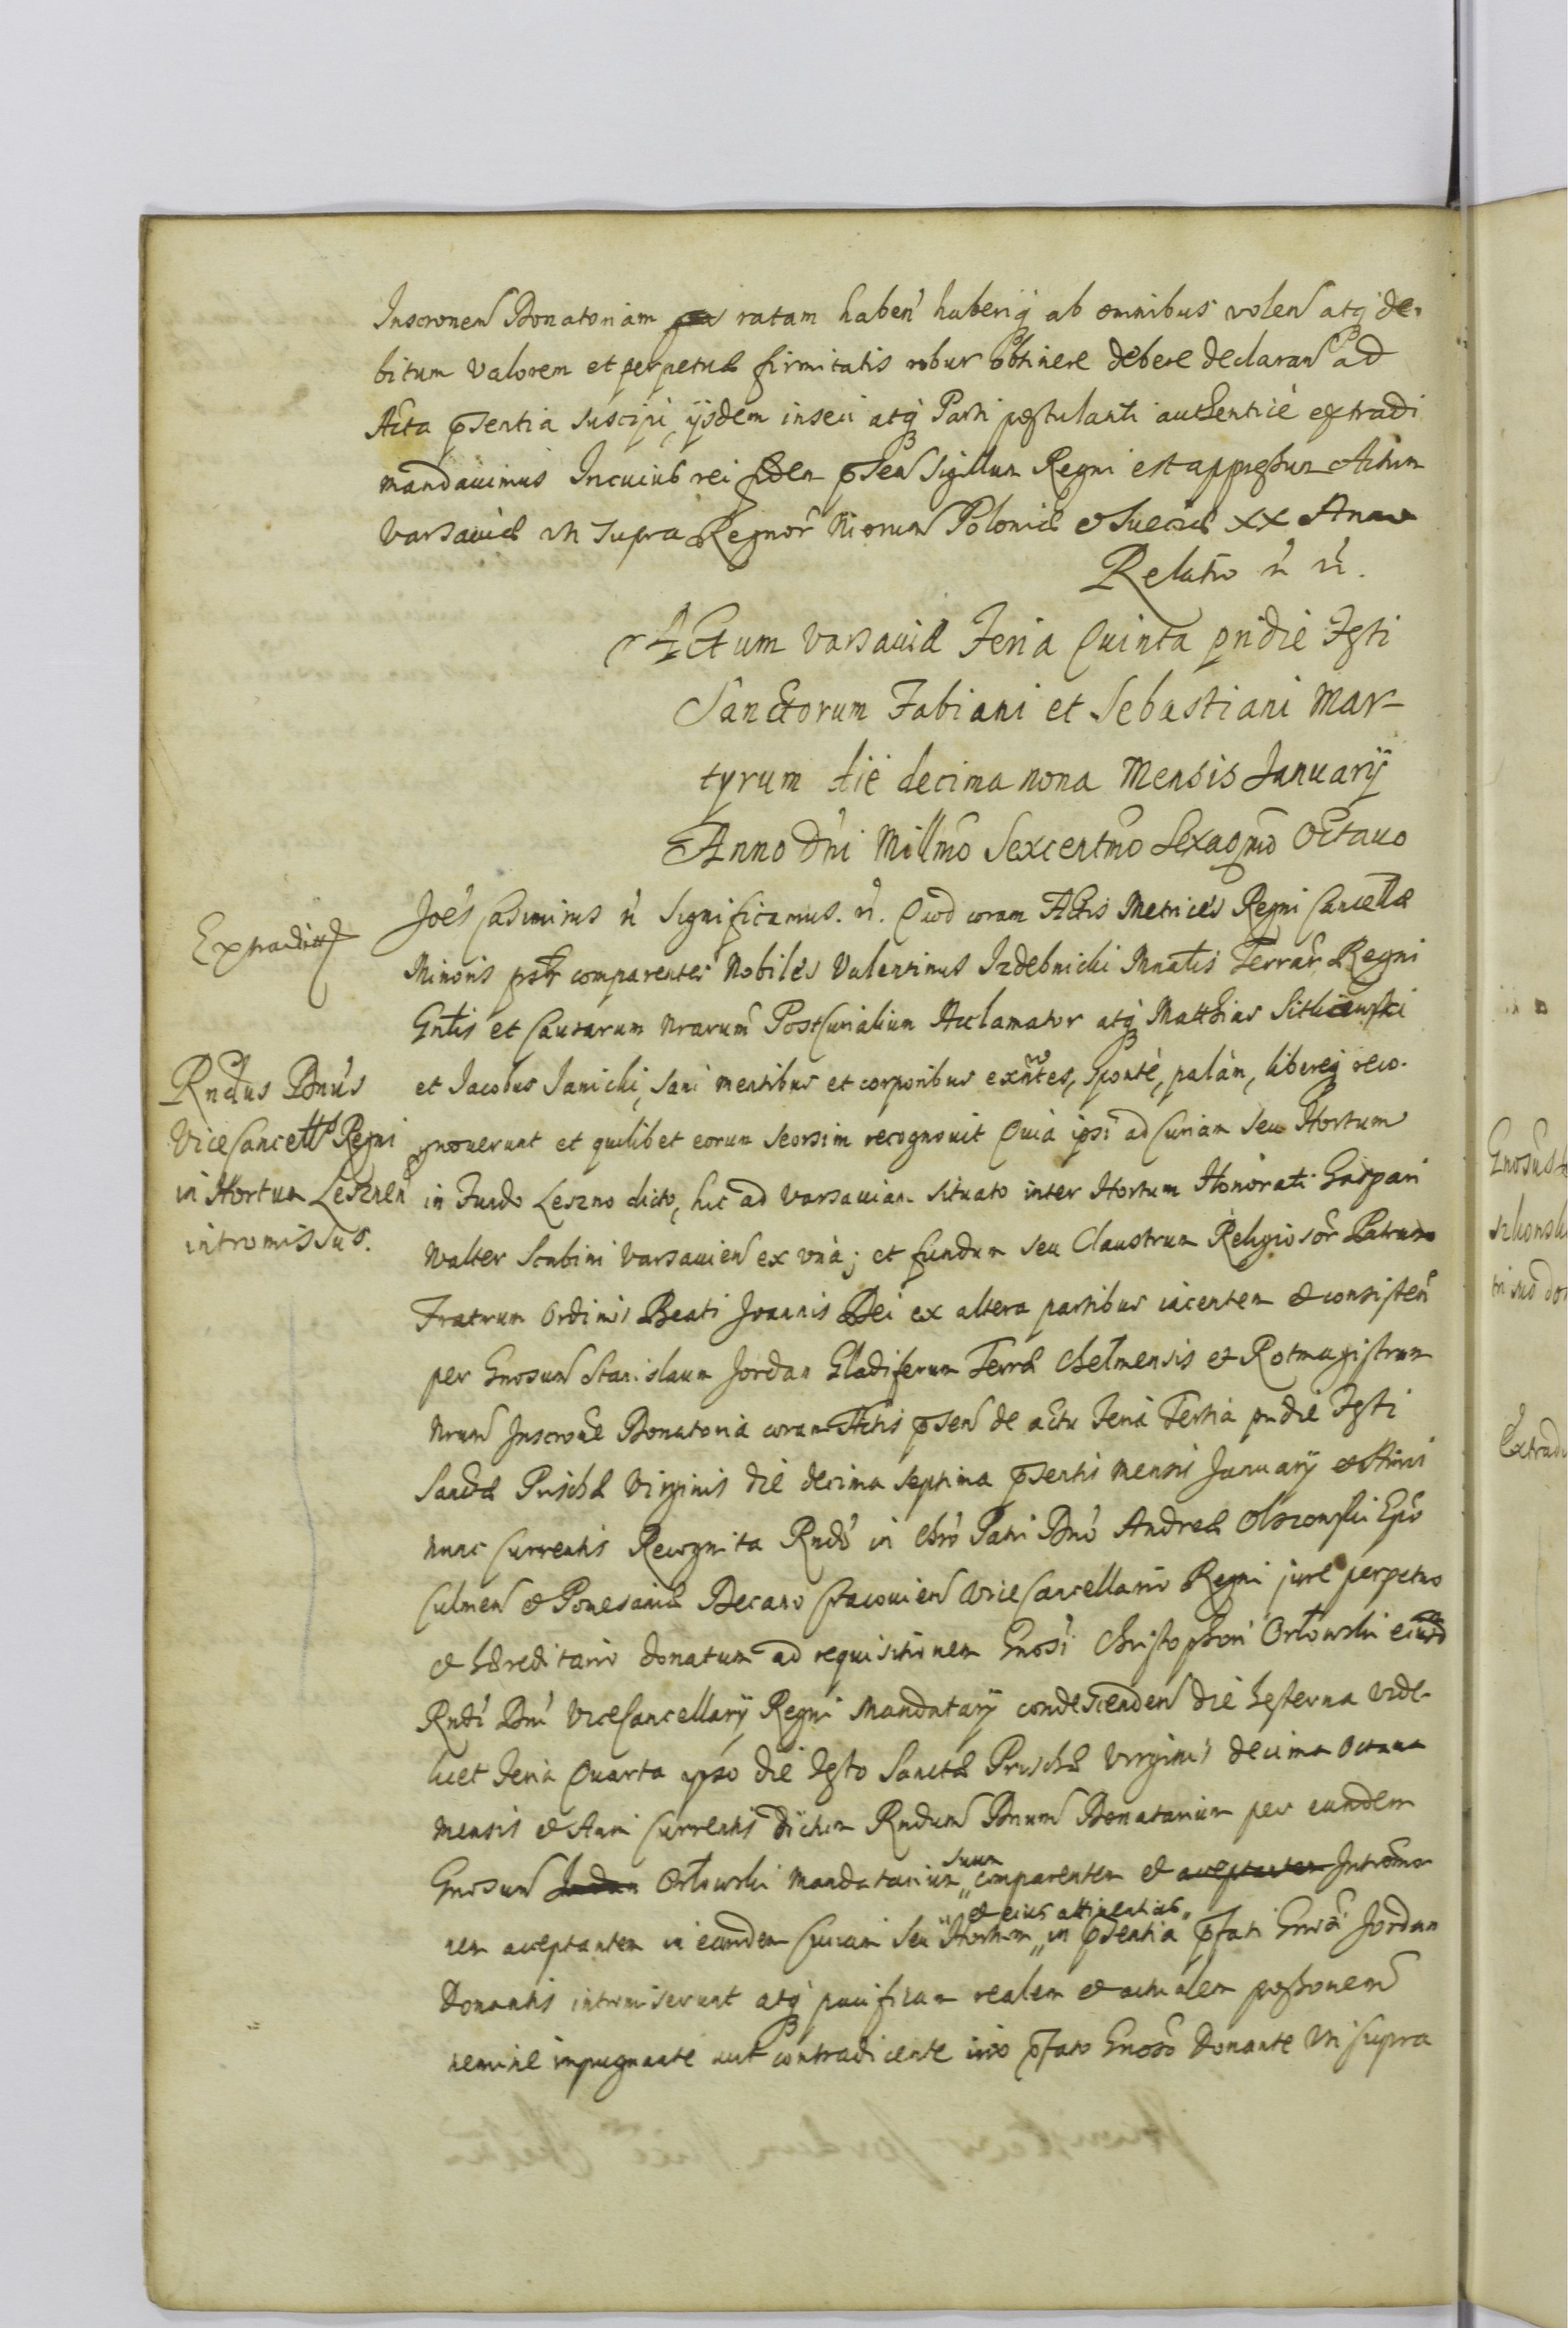 Inscronem Donatoriam ratam haben haberiq ab omnibus volen atq de-
bitum valorem et perpetuæ firmitatis robur obtinere debere declaran ad
Acta psentia suscipi, ijsdem inseri atq Parti postulanti authenticè extradi
mandauimus In cuius rei fidem psen Sigillum Regni est appressum Actum
Varsauiæ ut supra Regnor nrorum Poloniæ et Sueciæ XX Anno
Relatio ut ut.
Actum Varsauiæ Feria Quinta pridie Festi
Sanctorum Fabiani et Sebastiani Mar-
tyrum die decima nona Mensis Januarij
Anno Dni Millmo Sexcentmo Sexagmo Octauo
Extraditt
Joes Casimirus ut significamus. ut. Quod coram Actis Metrices Regni Cancellæ
Minoris psr comparentes Nobiles Valentinus Izdebnicki Mnatis Terrar Regni
Gntis et Causarum nrarum PostCurialium Acclamator atq Matthias Sitkiewski
Rndus Dnus
ViceCancells Regni
in Hortum Leznen
intromissus.
et Jacobus Janicki, sani mentibus et corporibus exntes, sponte, palàm, libereq reco-
gnouerunt et quilibet eorum seorsim recognouit Quia ipsi ad Curiam seu Hortum
in Fundo Leszno dicto, hic ad Varsauiam situato inter Hortum Honorati Gaspari
Walter Scabini Varsauien ex una; et fundum seu Claustrum Religiosor Patrum
Fratrum Ordinis Beati Joannis Dei ex altera partibus iacentem et consisten
per Gnosum Stanislaum Jordan Gladiferum Terræ Chelmensis et Rotmagistrum
nrum Inscrone Donatoria coram Actis psen de actu Feria Tertia pridie Festi
Sanctæ Priscæ Virginis die decima septima psentis mensis Januarij et Anni
nunc Currentis Recognita Rndo in Chro Patri Dno Andreæ Olszowski Epo
Culmen et Pomesaniæ Decano Cracouien ViceCancellario Regni jure perpetuo
et hæreditario donatum ad requisitionem Gnosi Christophori Orłowski eiusd
Rndi Dni ViceCancellarij Regni Mandatarij condescenden die hesterna vide-
licet Feria Quarta ipso die Festo Sanctæ Priscæ Virginis decima octaua
mensis et Anni Currentis dictum Rndum Dnum Donatarium per eundem
Gnosum Jordan Orłowski Mandatarium suum comparentem et acceptantem Intromo
nem acceptantem in eandem Curiam seu Hortum et eius attinentias in psentia pfati Gnosi Jordan
Donantis intromiserunt atq pacificam realem et actualem possonem
nemine impugnante aut contradicente imo pfato Gnoso Donante uti supra